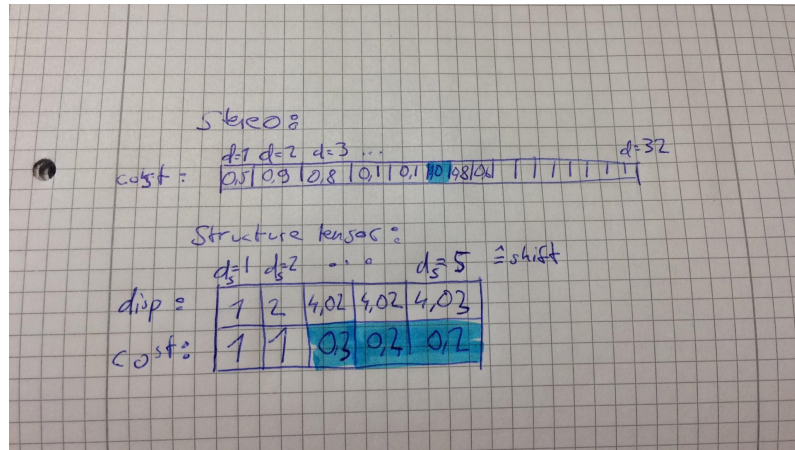 Stereo:
d=1 d=2 d=3 ... d=32
cost: 0,5 0,9 0,8 0,1 0,1
Structure tensor:
ds=1 ds=2 ... ds=5 ≙ shift
disp: 1 2 4,02 4,02 4,03
cost: 1 1 0,3 0,2 0,2